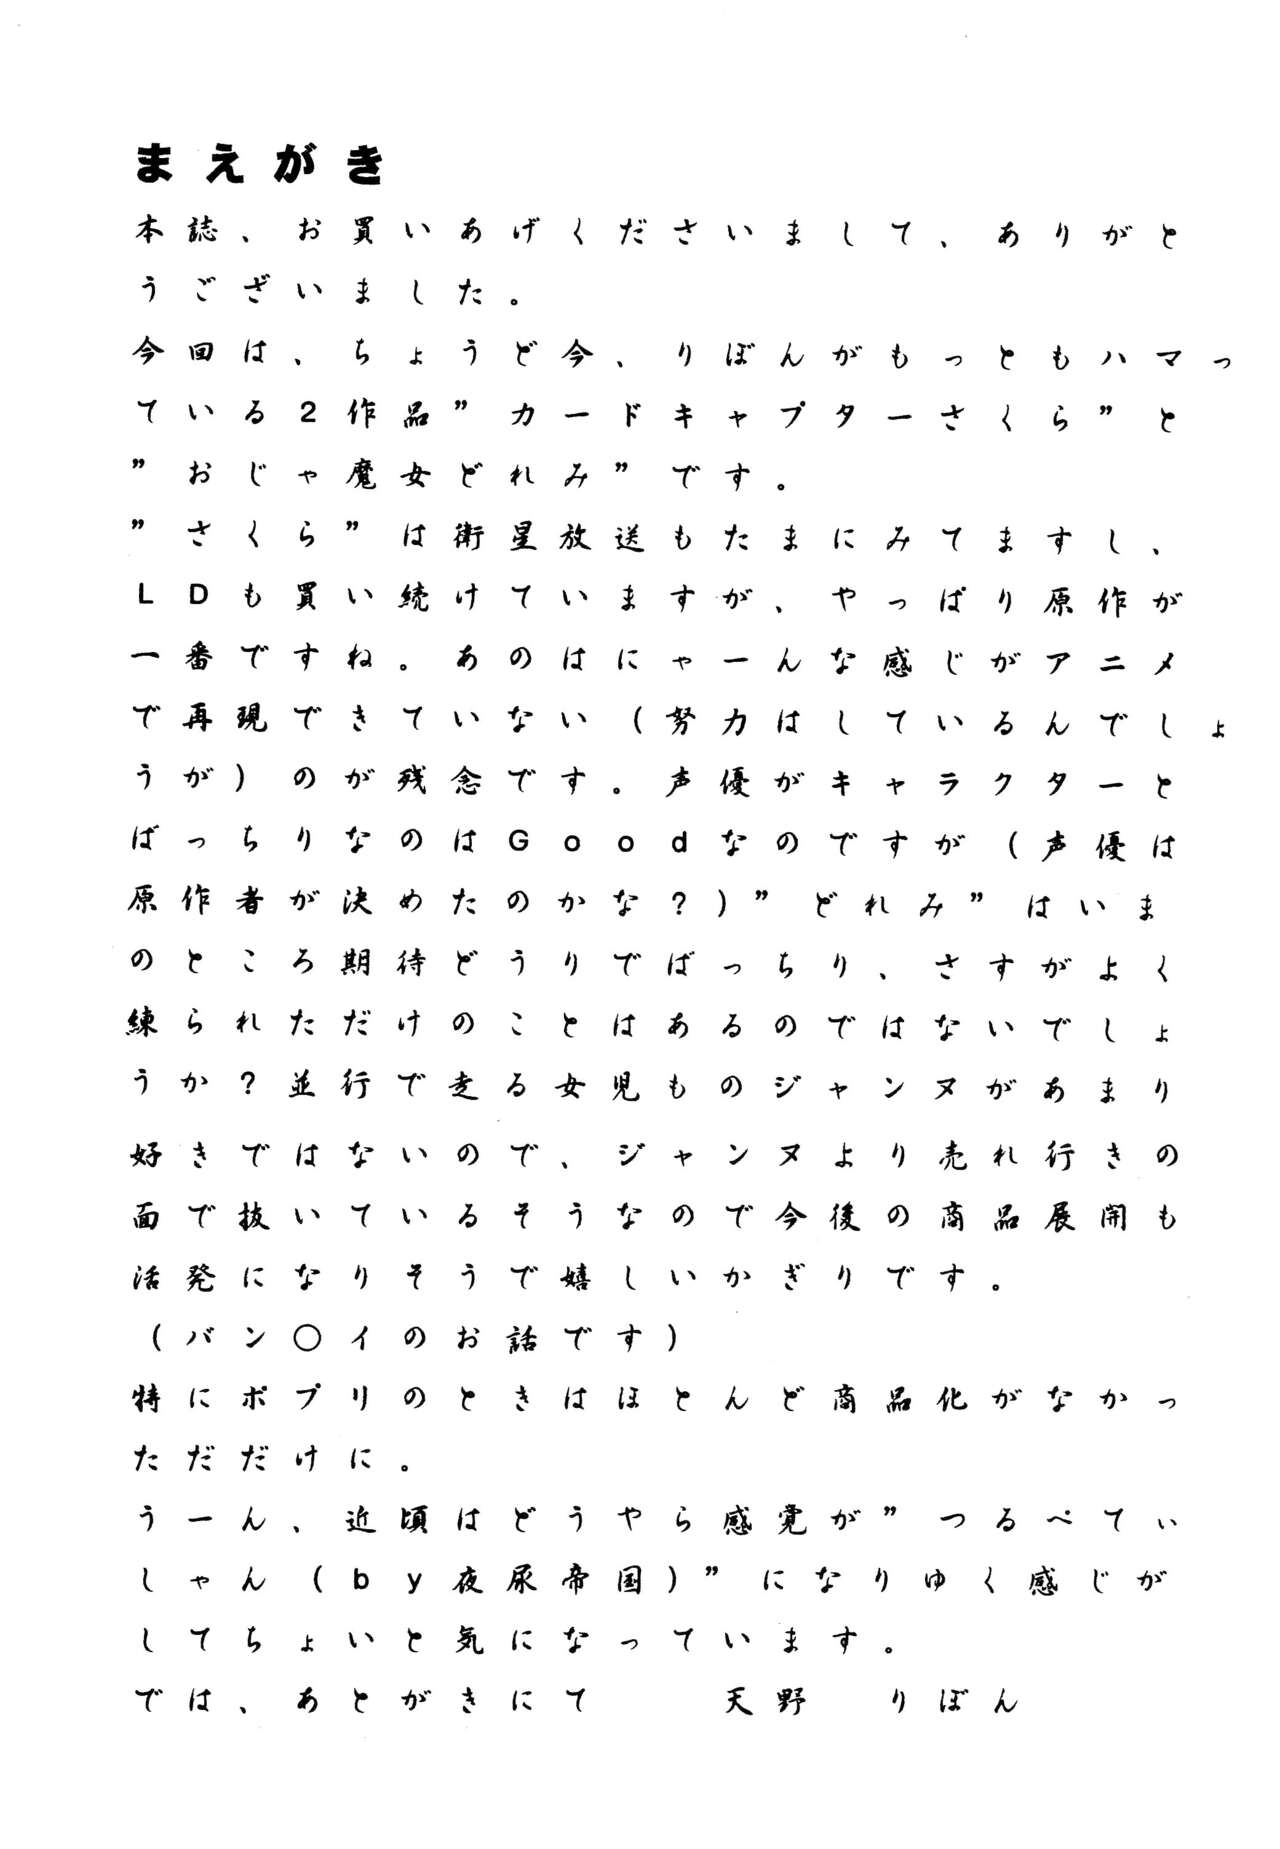 まえがき
本誌、お買いあげくださいまして、ありがと
うございました。
今回は、ちょうど今、りぼんがもっともハマっ
ている2作品”カードキャプターさくら”と
”おじゃ魔女どれみ”です。
”さくら”は衛星放送もたまにみてますし、
LDも買い続けていますが、やっぱり原作が
一番ですね。あのはにゃーんな感じがアニメ
で再現できていない(努力はしているんでしょ
うが)のが残念です。声優がキャラクターと
ばっちりなのはGoodなのですが(声優は
原作者が決めたのかな?)”どれみ”はいま
のところ期待どうりでばっちり、さすがよく
練られただけのことはあるのではないでしょ
うか?並行で走る女児ものジャンヌがあまり
好きではないので、ジャンヌより売れ行きの
面で抜いているそうなので今後の商品展開も
活発になりそうで嬉しいかぎりです。
(バン〇イのお話です)
特にポプリのときはほとんど商品化がなかっ
ただだけに。
うーん、近頃はどうやら感覚が”つるぺてぃ
しゃん(by夜尿帝国)”になりゆく感じが
してちょいと気になっています。
では、あとがきにて　　天野　りぼん